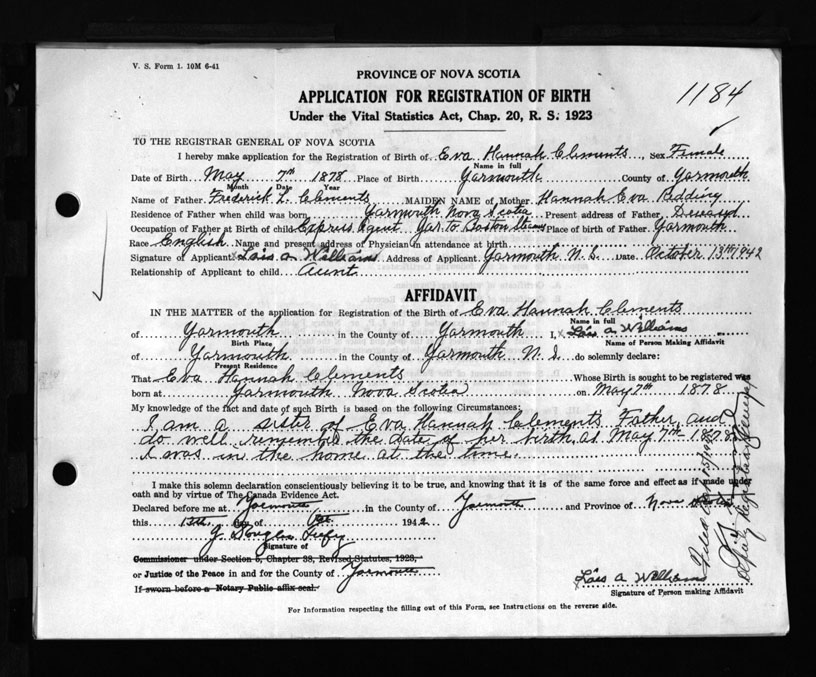 V. S. Form 1. 10M 6-41
PROVINCE OF NOVA SCOTIA
1184
APPLICATION FOR REGISTRATION OF BIRTH
Under the Vital Statistics Act, Chap. 20, R. S. 1923
TO THE REGISTRAR GENERAL OF NOVA SCOTIA
I hereby make application for the Registration of Birth of Eva Hannah Clements, Sex Female
Name in full
Date of Birth May 7th 1878 Place of Birth Yarmouth County of Yarmouth
Month Date Year
Name of Father Frederick L. Clements MAIDEN NAME of Mother Hannah Eva
Residence of Father when child was born Yarmouth Nova Scotia Present address of Father Deceased
Occupation of Father at Birth of child Express Agent Yar to Boston Place of birth of Father Yarmouth
Race English Name and present address of Physician in attendance at birth
Signature of Applicant Lois A Williams Address of Applicant Yarmouth N.S. Date October 13th 1942
Relationship of Applicant to child Aunt
AFFIDAVIT
IN THE MATTER of the application for Registration of the Birth of Eva Hannah Clements
Name in full
of Yarmouth in the County of Yarmouth I, Lois A Williams
Birth Place Name of Person Making Affidavit
of Yarmouth in the County of Yarmouth N.S. do solemnly declare:
Present Residence
That Eva Hannah Clements Whose Birth is sought to be registered was
born at Yarmouth Nova Scotia on May 7th 1878
My knowledge of the fact and date of such Birth is based on the following Circumstances:
I am a sister of Eva Hannah Clements Father and
do well remember the date of her birth as May 7th 1878
I was in the home at the time.
I make this solemn declaration conscientiously believing it to be true, and knowing that it is of the same force and effect as if made under
oath and by virtue of The Canada Evidence Act.
Declared before me at Yarmouth in the County of Yarmouth and Province of Nova Scotia
this 13th day of Oct 1942
J. Douglas
Signature of
Commissioner under Section 5, Chapter 38, Revised Statutes, 1923,
or Justice of the Peace in and for the County of Yarmouth
If sworn before a Notary Public affix seal.
Lois A Williams
Signature of Person making Affidavit
Deputy Registrar General
For Information respecting the filling out of this Form, see Instructions on the reverse side.